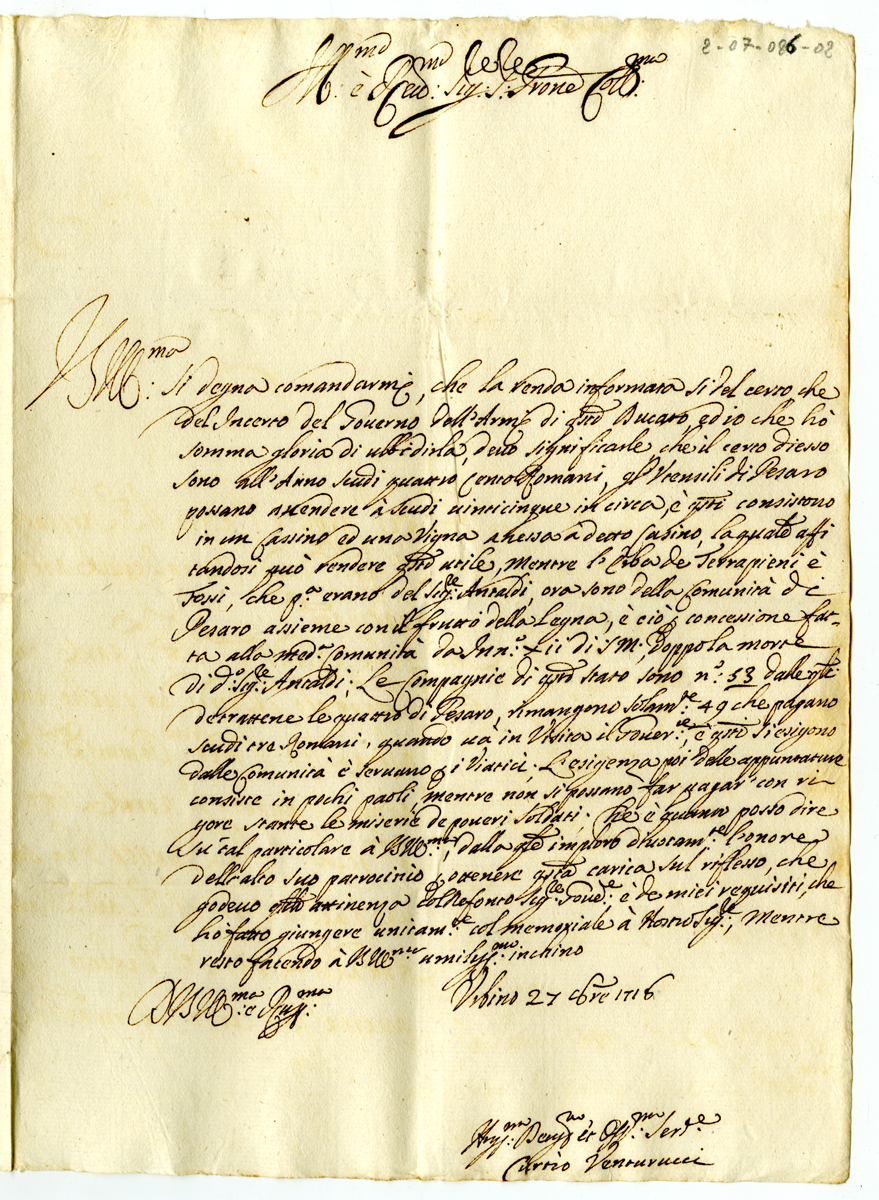 2-07-086-02
Ill.mo è Rev.mo Sig.re Sig.re P'rone Coll.mo
VS Ill.ma: si degna comandarmi, che la renda informata sì del certo che
del Incerto del Governo dell'Armi di q'sto Ducato ed io che hò
somma gloria di ubbidirla, devo significarle che il certo d'esso
sono all'Anno scudi quattro cento Romani, gl'Vtensili di Pesaro
possano ascendere à scudi vinticinque in circa, è q'sti consistono
in un Cassino ed una Vigna anessa à detto Casino, la quale affi
tandosi può rendere q'sto utile, mentre l'Erba de Terrapieni è
Fossi, che p.a erano del Sig.re Antaldi, ora sono della Comunità di
Pesaro assieme con il frutto della Legna, è ciò p concessione fat-
ta alla med.a Comunità da Inn.o XII di S.M., doppo la morte
di d.o Sig.re Antaldi; Le Compagnie di q'sto stato sono n.o 53 dalle q'li
detrattene le quattro di Pesaro, rimangono solam.te 49 che pagano
scudi tre Romani, quando và in Visita il Gover.re, è q'sti si esigono
dalle Comunità è servano p i Viatici; L'esigenza poi delle appuntature
consiste in pochi paoli, mentre non si possano far pagar con ri-
gore stante le miserie de poveri soldati; Che è quanto posso dire
su tal particolare à VS Ill.ma, dalla q'le imploro divotam.te l'honore
dell'alto suo patrocinio p ottenere q'sta carica sul riflesso, che
godevo q'sta attinenza col defonto Sig.re Gov.re è de miei requisiti, che
hò fatto giungere unicam.te col memoriale à Nostro Sig.re, Mentre
resto facendo à VS Ill.ma umiliss.mo inchino
D VS Ill.ma e Rev.ma
Vrbino 27 9bre 1716
Hum.mo Dev.mo et Obl.mo Ser.re
Curtio Venturucci